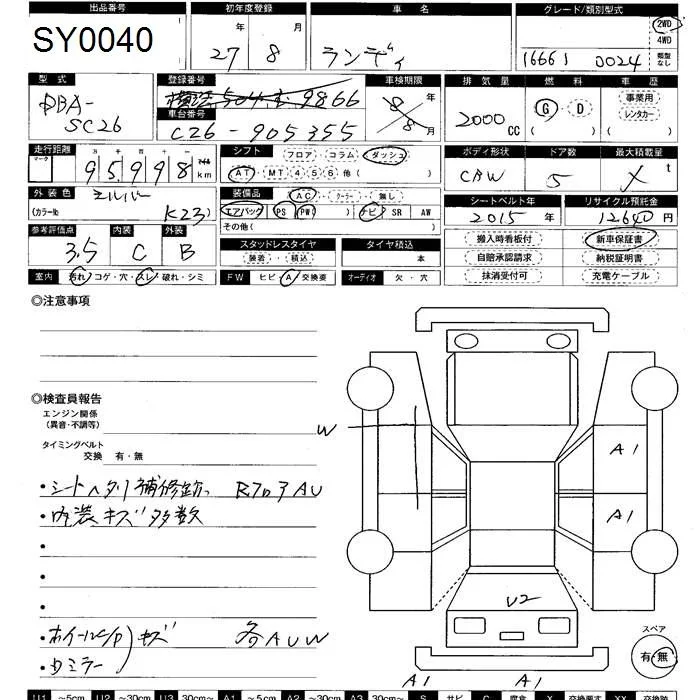 出品番号 初年度登録 車名 グレード/類別型式
SY0040 27年 8月 ランディ 16661 0024 2WD 4WD 類型なし
型式 登録番号 車検期限 排気量 燃料 車歴
DBA-SC26 横浜504 9866 8年 8月 2000cc G・D ( ) 事業用 レンタカー ( )
車台番号
C26-905355
走行距離 シフト フロア・コラム・ダッシュ ボディ形状 ドア数 最大積載量
マーク 万 千 百 十 一 95998 マイル km AT・MT 4 5 6 他( ) CAW 5 X t
外装色 シルバー 装備品 AC・クーラー・無し シートベルト年 リサイクル預託金
(カラーNo K23) エアバッグ PS PW( ) ナビ SR AW 2015年 12640円
その他( )
参考評価点 内装 外装 スタッドレスタイヤ タイヤ積込 搬入時看板付 新車保証書
3.5 C B 装着・積込 本 自賠承認請求 納税証明書
室内 汚れ・コゲ・穴・スレ・破れ・シミ FW ヒビ・A・交換要 オーディオ 欠・穴 抹消受付可 充電ケーブル
◎注意事項
◎検査員報告
エンジン関係
(異音・不調等)
タイミングベルト
交換 有・無
・シートヘタリ補修跡、RフロアAU
・内装キズ多数
・
・
・
・ホイールC/P キズ 各AUW
・ミラー
W
A1
A1
U2
A1 A1
スペア
有・無
U1 ~5cm U2 ~30cm U3 30cm~ A1 ~5cm A2 ~30cm A3 30cm~ S サビ C 腐食 X 交換要す XX 交換跡